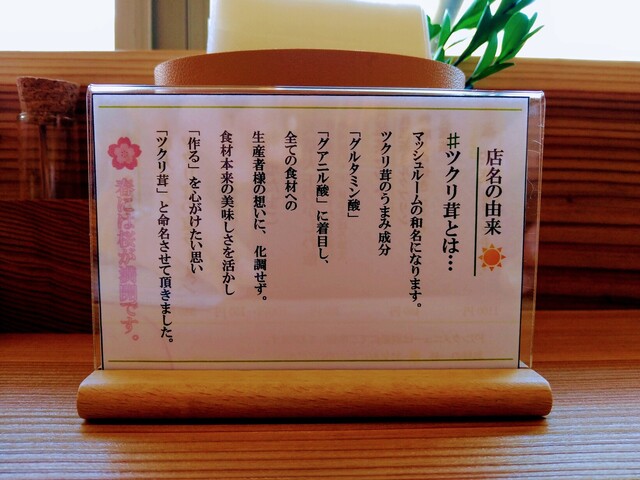 店名の由来
#ツクリ茸とは…
マッシュルームの和名になります。
ツクリ茸のうまみ成分
「グルタミン酸」
「グアニル酸」に着目し、
全ての食材への
生産者様の想いに、化調せず。
食材本来の美味しさを活かし
「作る」を心がけたい思い
「ツクリ茸」と命名させて頂きました。
春には桜が満開です。